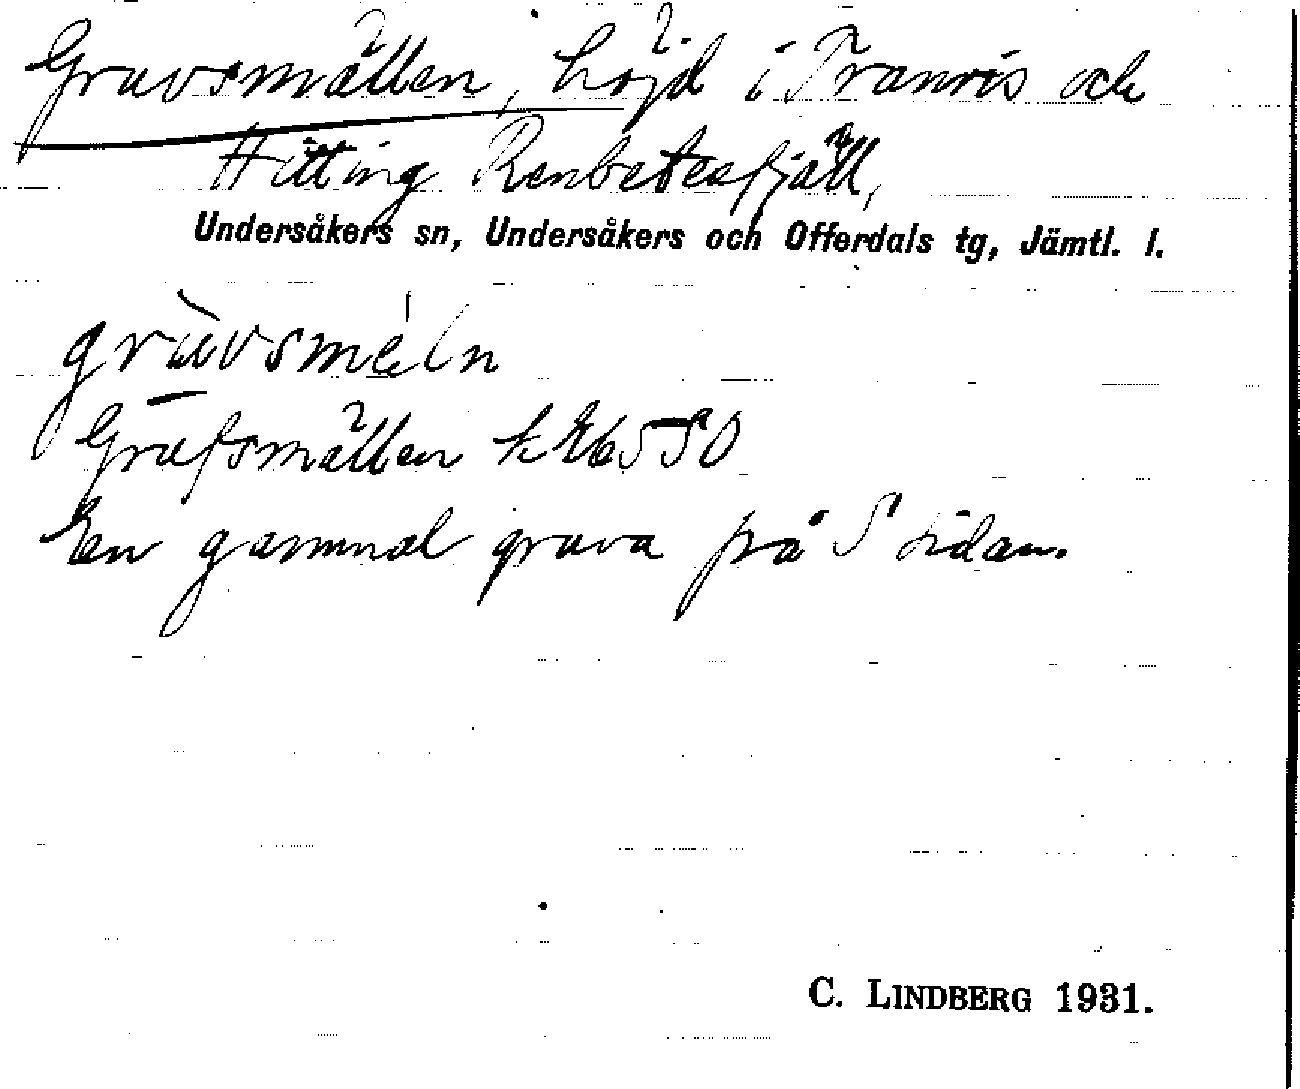 Gruvsmällen, höjd i Tranris och
Hitting Renbetesfjäll,
Undersåkers sn, Undersåkers och Offerdals tg, Jämtl. l.
grùvsméln
Grufsmällen
En gammal gruva på S sidan.
C. LINDBERG 1931.